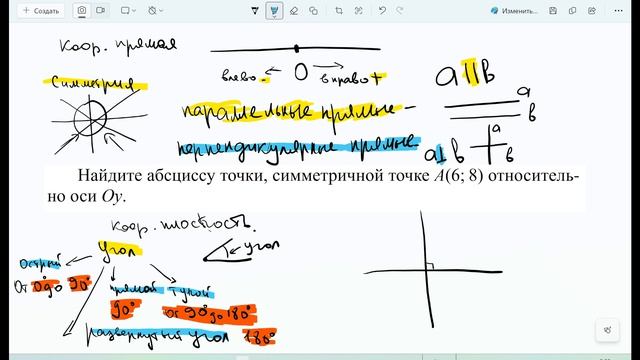 Создать
Изменить...
Коор. прямая
влево - 0 вправо +
Симметрия
a || b
a
b
параллельные прямые -
перпендикулярные прямые
a ⊥ b
a
b
Найдите абсциссу точки, симметричной точке A(6; 8) относитель-
но оси Oy.
Коор. плоскость.
угол
угол
Острый
прямой
тупой
От 0° до 90°
90°
от 90° до 180°
развернутый угол 180°